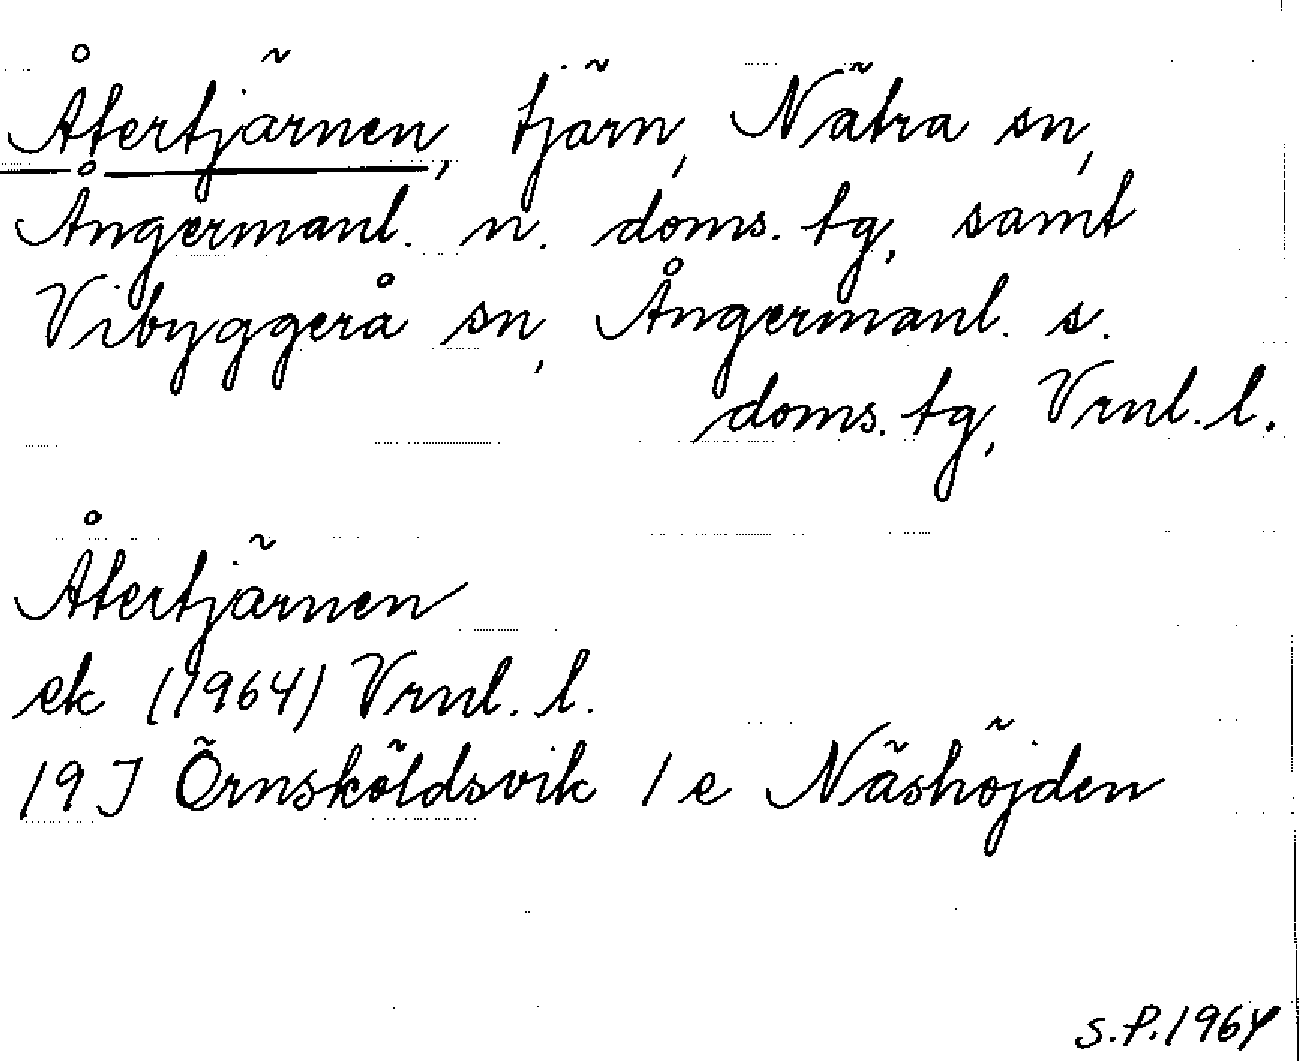 Återtjärnen, tjärn, Nätra sn,
Ångermanl. n. doms. tg, samt
Vibyggerå sn, Ångermanl. s.
doms. tg, Vrnl. l.
Återtjärnen
ek (1964) Vrnl. l.
19J Örnsköldsvik 1e Näshöjden
S.P.1964